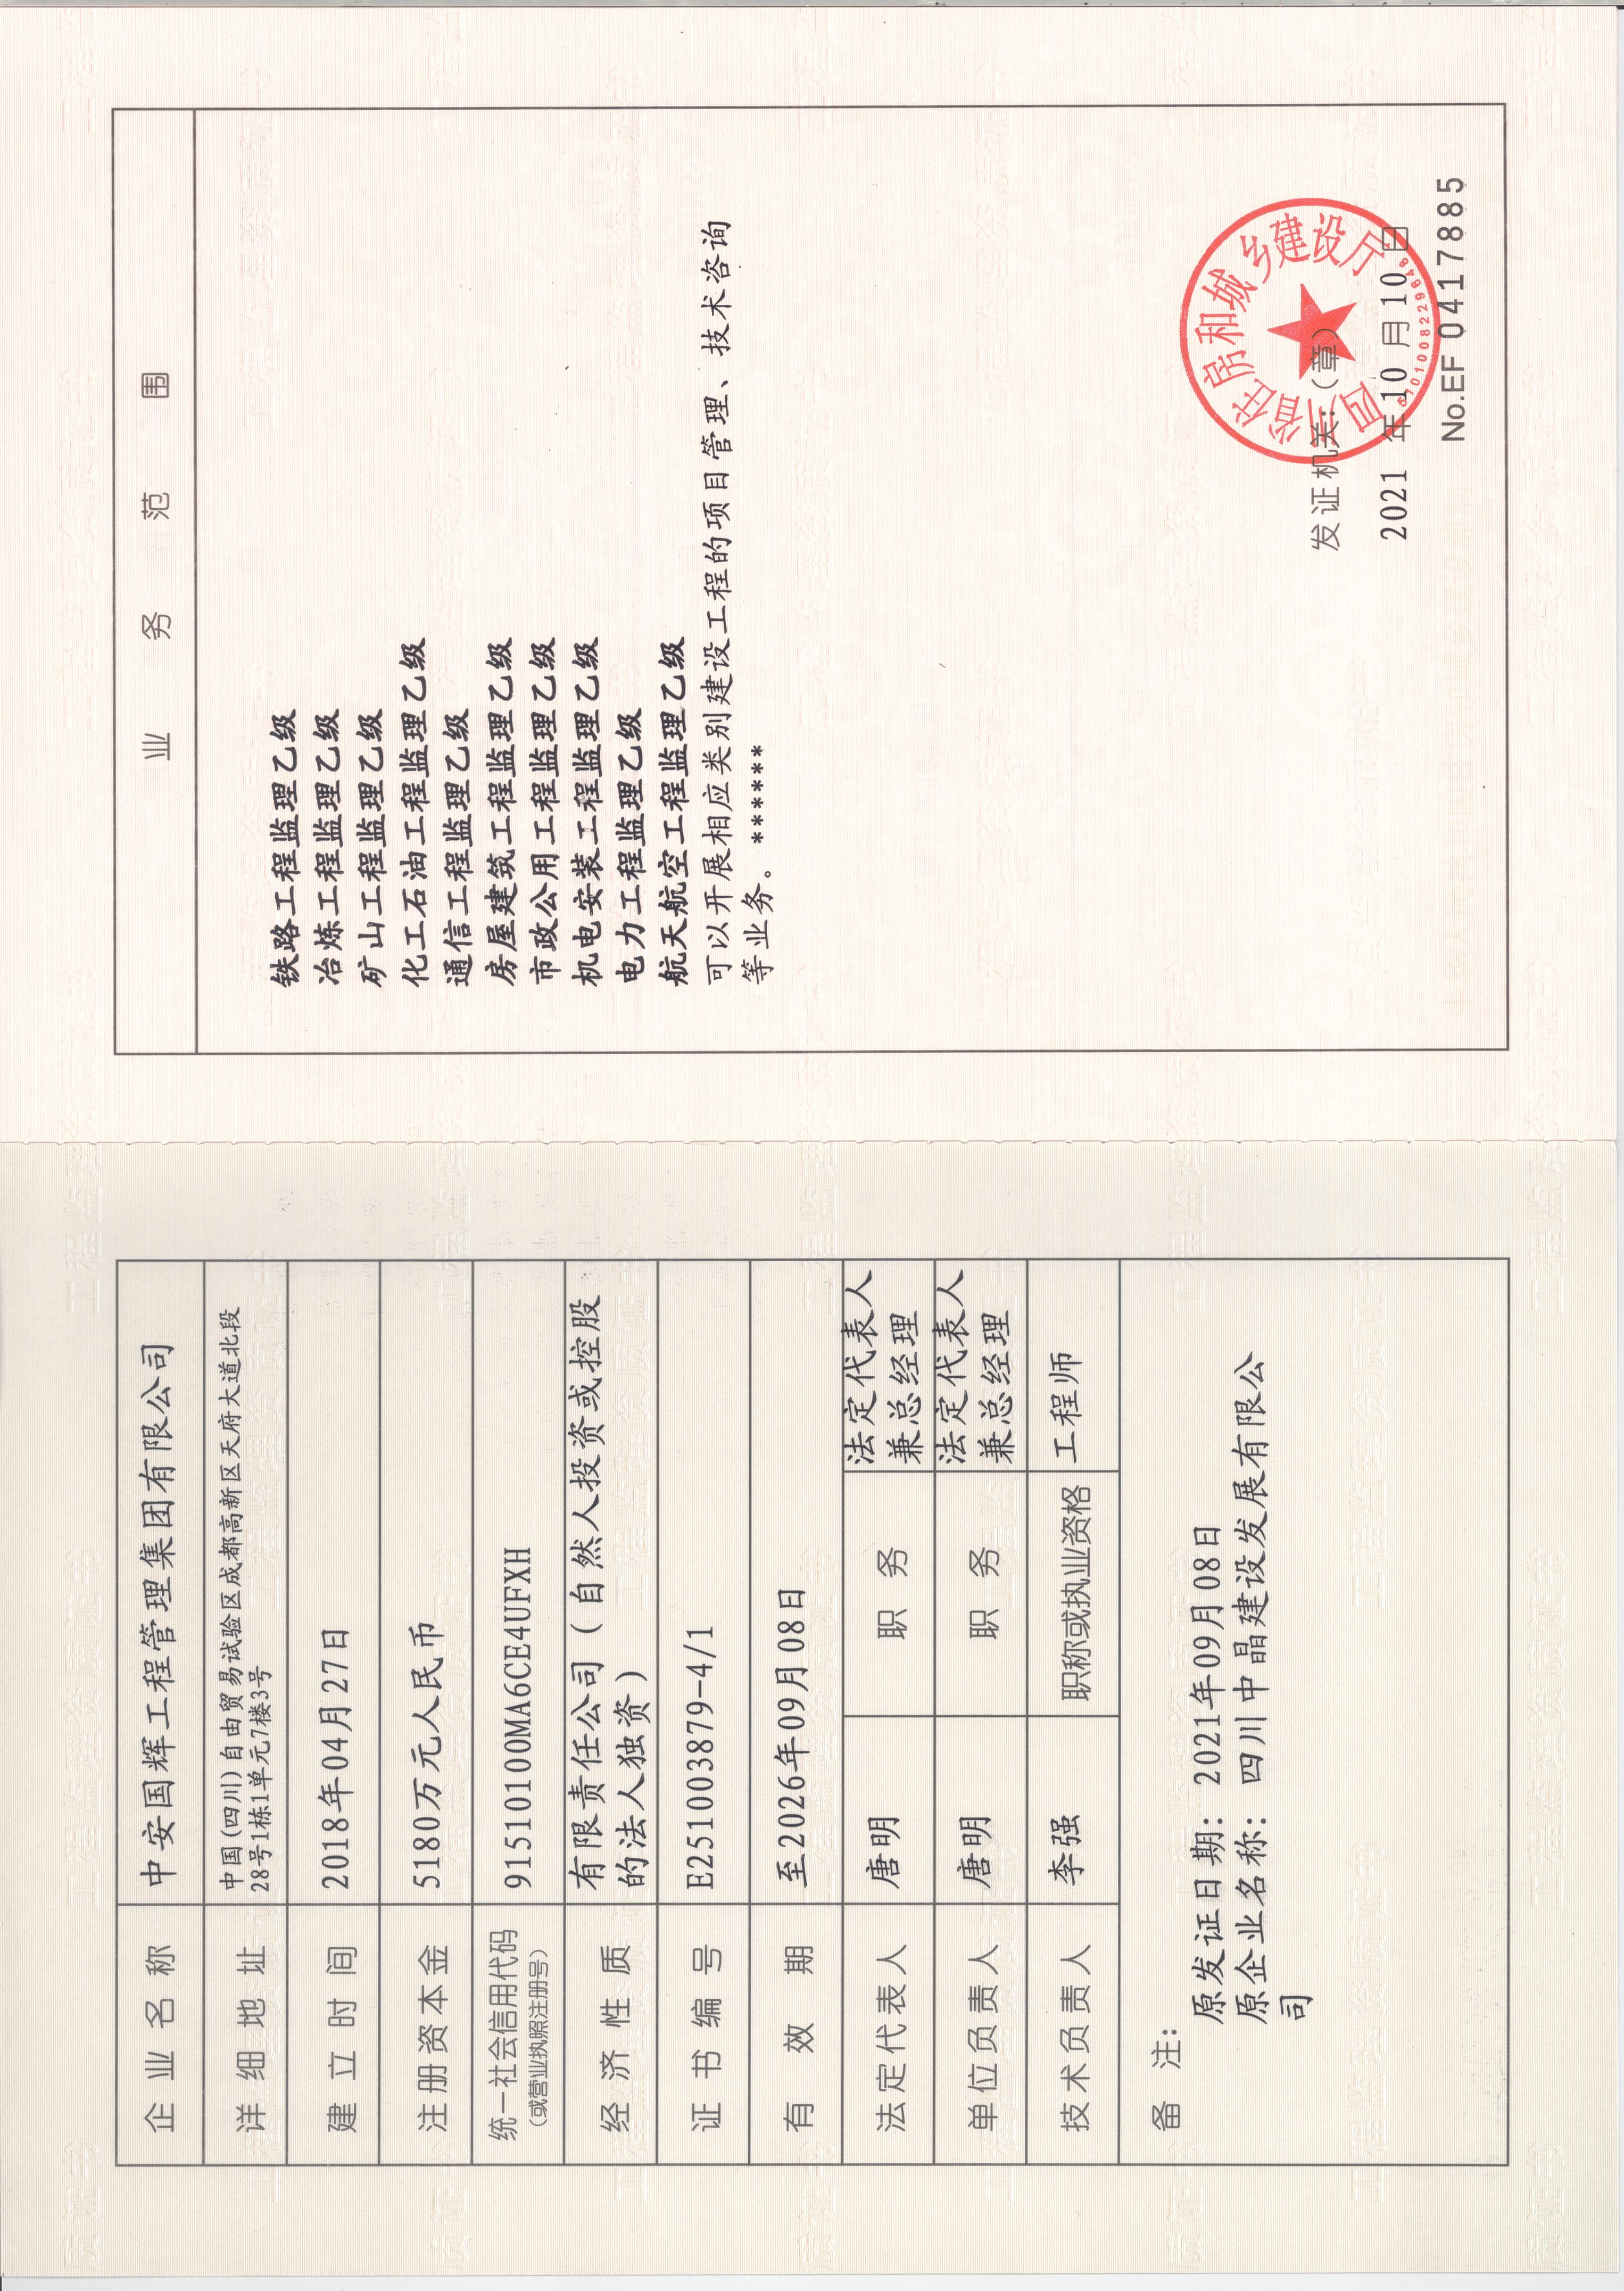 企业名称 中安国辉工程管理集团有限公司
详细地址 中国(四川)自由贸易试验区成都高新区天府大道北段
28号1栋1单元7楼3号
建立时间 2018年04月27日
注册资本金 5180万元人民币
统一社会信用代码 91510100MA6CE4UFXH
(或营业执照注册号)
经济性质 有限责任公司(自然人投资或控股
的法人独资)
证书编号 E251003879-4/1
有效期 至2026年09月08日
法定代表人 唐明 职务 法定代表人
兼总经理
单位负责人 唐明 职务 法定代表人
兼总经理
技术负责人 李强 职称或执业资格 工程师
备注:
原发证日期: 2021年09月08日
原企业名称: 四川中晶建设发展有限公
司
业务范围
铁路工程监理乙级
冶炼工程监理乙级
矿山工程监理乙级
化工石油工程监理乙级
通信工程监理乙级
房屋建筑工程监理乙级
市政公用工程监理乙级
机电安装工程监理乙级
电力工程监理乙级
航天航空工程监理乙级
可以开展相应类别建设工程的项目管理、技术咨询
等业务。*******
四川省住房和城乡建设厅
发证机关:(章)
2021年10月10日
No.EF 0417885